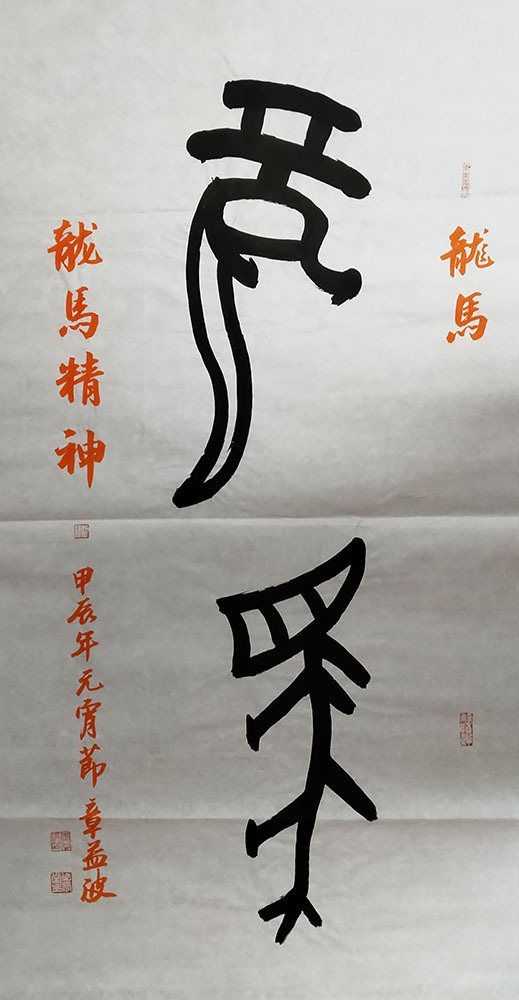 龍馬
龍馬
龍馬精神
甲辰年元宵節 章益波